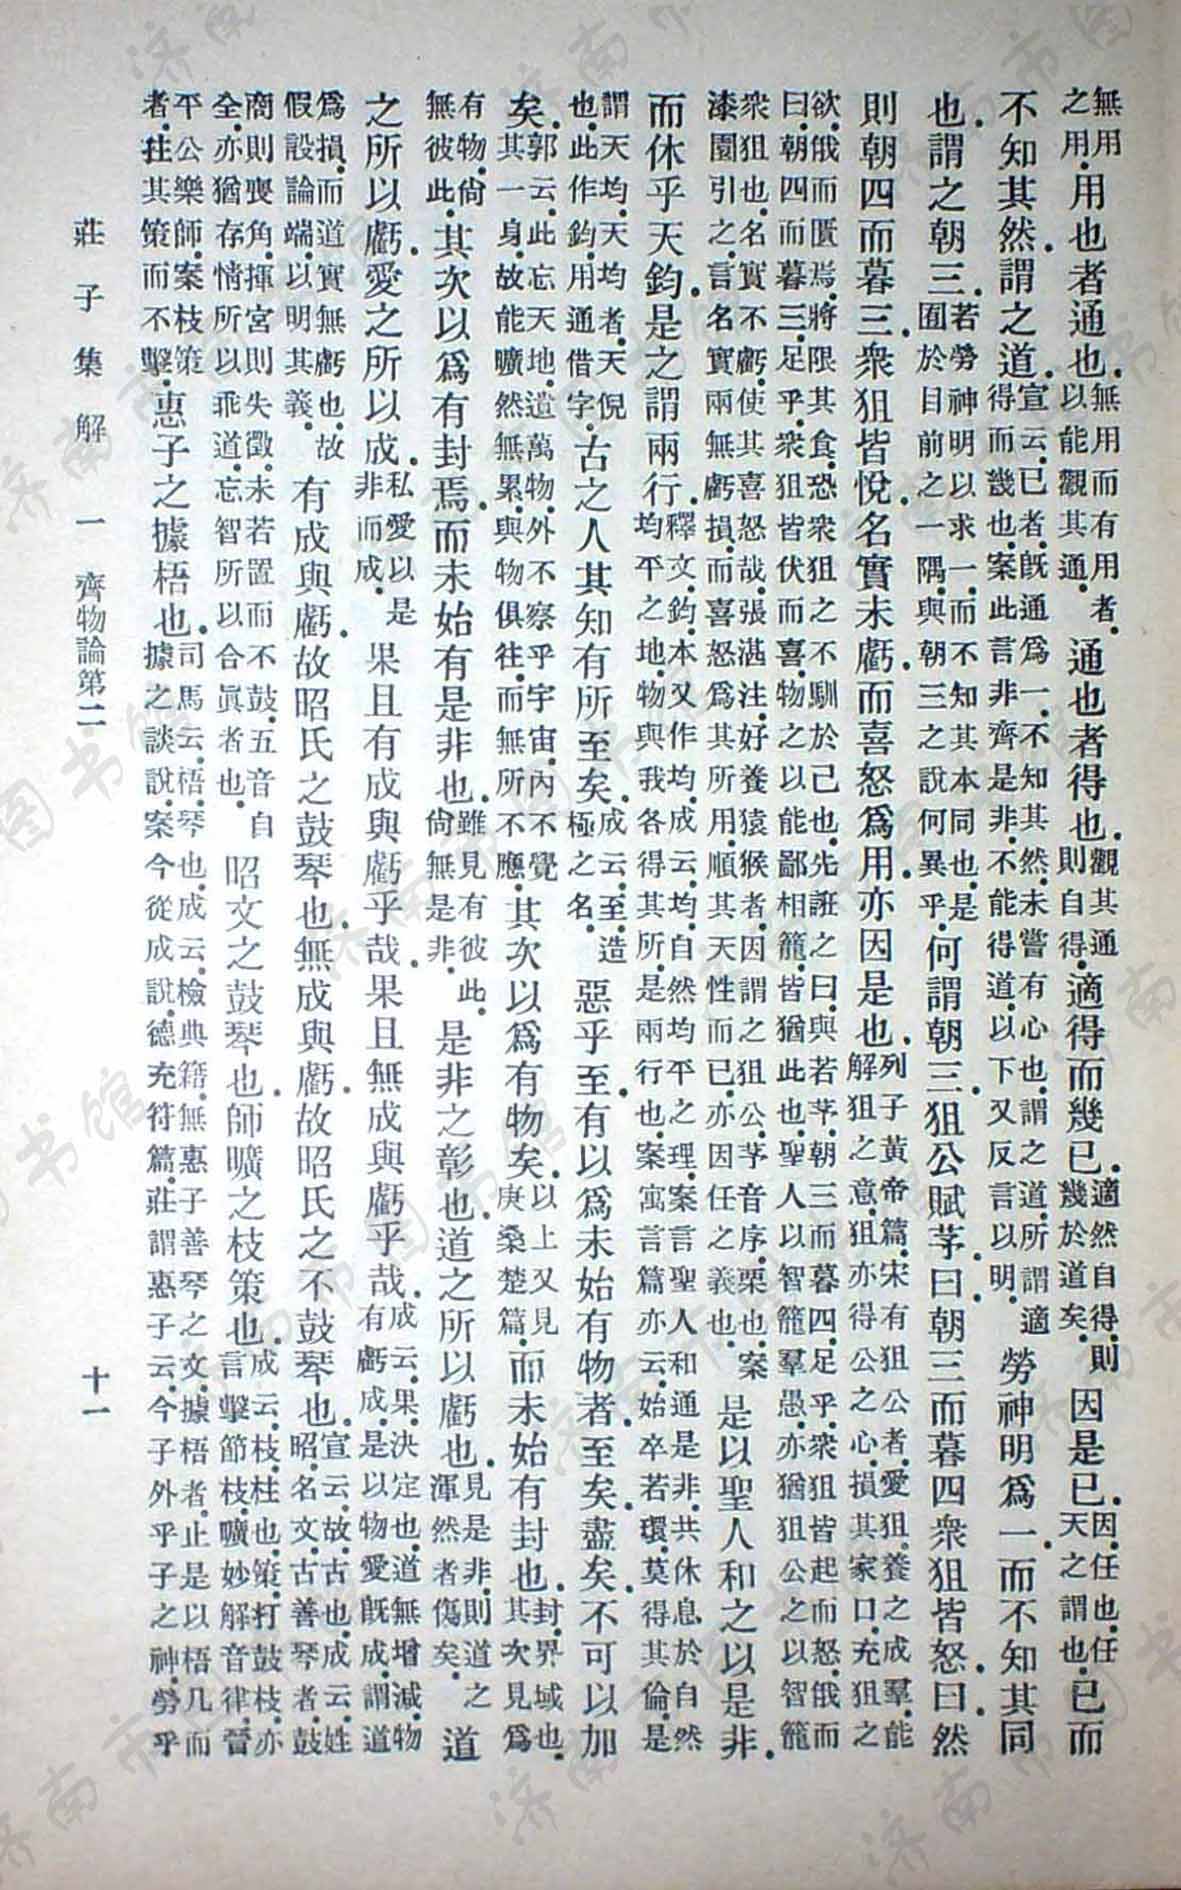 無用之用。用也者通也。無用而有用者。以能觀其通。通也者得也。觀其通則自得。適得而幾已。適然自得。則幾於道矣。因是已。因任也。任天之謂也。已而
不知其然。謂之道。宣云。已者。既通爲一。不知其然。未嘗有心也。謂之道。所謂適得而幾也。案此言非齊是非。不能得道。以下又反言以明。勞神明爲一。而不知其同
也。謂之朝三。若勞神明以求一。而不知其本同也。是囿於目前之一隅。與朝三之說何異乎。何謂朝三。狙公賦芧。曰。朝三而暮四。衆狙皆怒。曰。然
則朝四而暮三。衆狙皆悅。名實未虧。而喜怒爲用。亦因是也。列子黃帝篇。宋有狙公者。愛狙。養之成羣。能解狙之意。狙亦得公之心。損其家口。充狙之
欲。俄而匱焉。將限其食。恐衆狙之不馴於己也。先誑之曰。與若芧。朝三而暮四。足乎。衆狙皆起而怒。俄而曰。朝四而暮三。足乎。衆狙皆伏而喜。物之以能鄙相籠。皆猶此也。聖人以智籠羣愚。亦猶狙公之以智籠
衆狙也。名實不虧。使其喜怒哉。張湛注。好養猿猴者。因謂之狙公。芧音序。栗也。案漆園引之。言名實兩無虧損。而喜怒爲其所用。順其天性而已。亦因任之義也。是以聖人和之以是非。
而休乎天鈞。是之謂兩行。釋文。鈞本又作均。成云。均自然均平之理。案言聖人和通是非。共休息於自然均平之地。物與我各得其所。是兩行也。案寓言篇亦云。始卒若環。莫得其倫。是
謂天均。天均者。天倪也。此作鈞。用通借字。古之人其知有所至矣。成云。至造極之名。惡乎至。有以爲未始有物者。至矣。盡矣。不可以加
矣。郭云。此忘天地。遺萬物。外不察乎宇宙。內不覺其一身。故能曠然無累。與物俱往。而無所不應。其次以爲有物矣。以上又見庚桑楚篇。而未始有封也。封。界域也。其次見爲
有物。尙無彼此。其次以爲有封焉。而未始有是非也。雖見有彼此。尙無是非。是非之彰也。道之所以虧也。見是非。則道之渾然者傷矣。道
之所以虧。愛之所以成。私愛以是非而成。果且有成與虧乎哉。果且無成與虧乎哉。成云。果決定也。道無增減。物有虧成。是以物愛既成。謂道
爲損。而道實無虧也。故假設論端。以明其義。有成與虧。故昭氏之鼓琴也。無成與虧。故昭氏之不鼓琴也。宣云。故。古也。成云。姓昭。名文。古善琴者。鼓
商則喪角。揮宮則失徵。未若置而不鼓。五音自全。亦猶存情所以乖道。忘智所以合眞者也。昭文之鼓琴也。師曠之枝策也。成云。枝。柱也。策。打鼓枝。亦言擊節枝。曠妙解音律。晉
平公樂師。案枝策者。拄其策而不擊。惠子之據梧也。司馬云。梧。琴也。成云。檢典籍。無惠子善琴之文。據梧者。止是以梧几而據之談說。案今從成說。德充符篇。莊謂惠子云。今子外乎子之神。勞乎
莊子集解 一 齊物論第二 十一
济南市图书馆